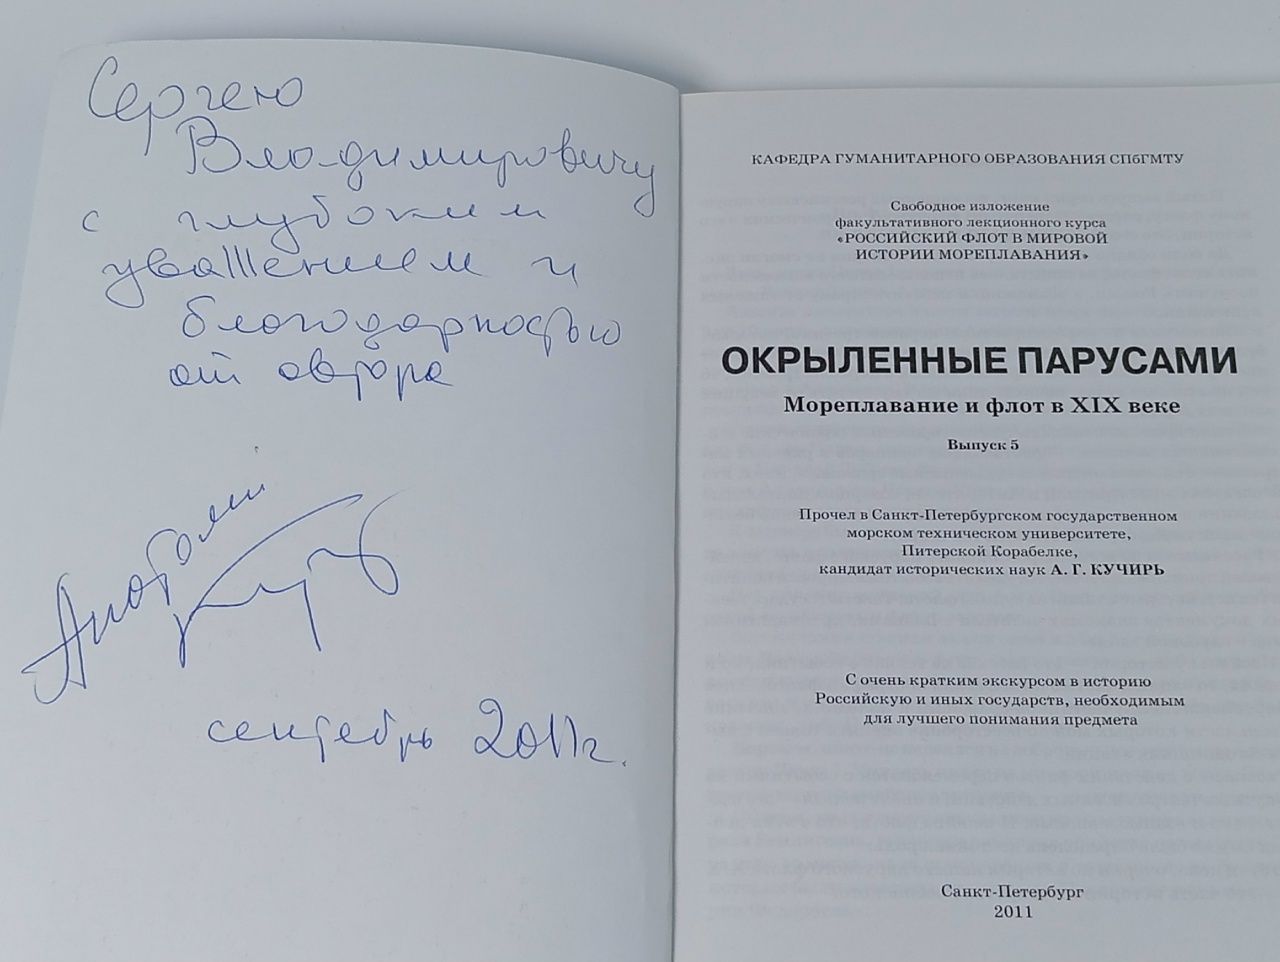 Сергею
Владимировичу
с глубоким
уважением и
благодарностью
от автора
Анатолий
сентябрь 2011г.
КАФЕДРА ГУМАНИТАРНОГО ОБРАЗОВАНИЯ СПбГМТУ
Свободное изложение
факультативного лекционного курса
«РОССИЙСКИЙ ФЛОТ В МИРОВОЙ
ИСТОРИИ МОРЕПЛАВАНИЯ»
ОКРЫЛЕННЫЕ ПАРУСАМИ
Мореплавание и флот в XIX веке
Выпуск 5
Прочел в Санкт-Петербургском государственном
морском техническом университете,
Питерской Корабелке,
кандидат исторических наук А. Г. КУЧИРЬ
С очень кратким экскурсом в историю
Российскую и иных государств, необходимым
для лучшего понимания предмета
Санкт-Петербург
2011